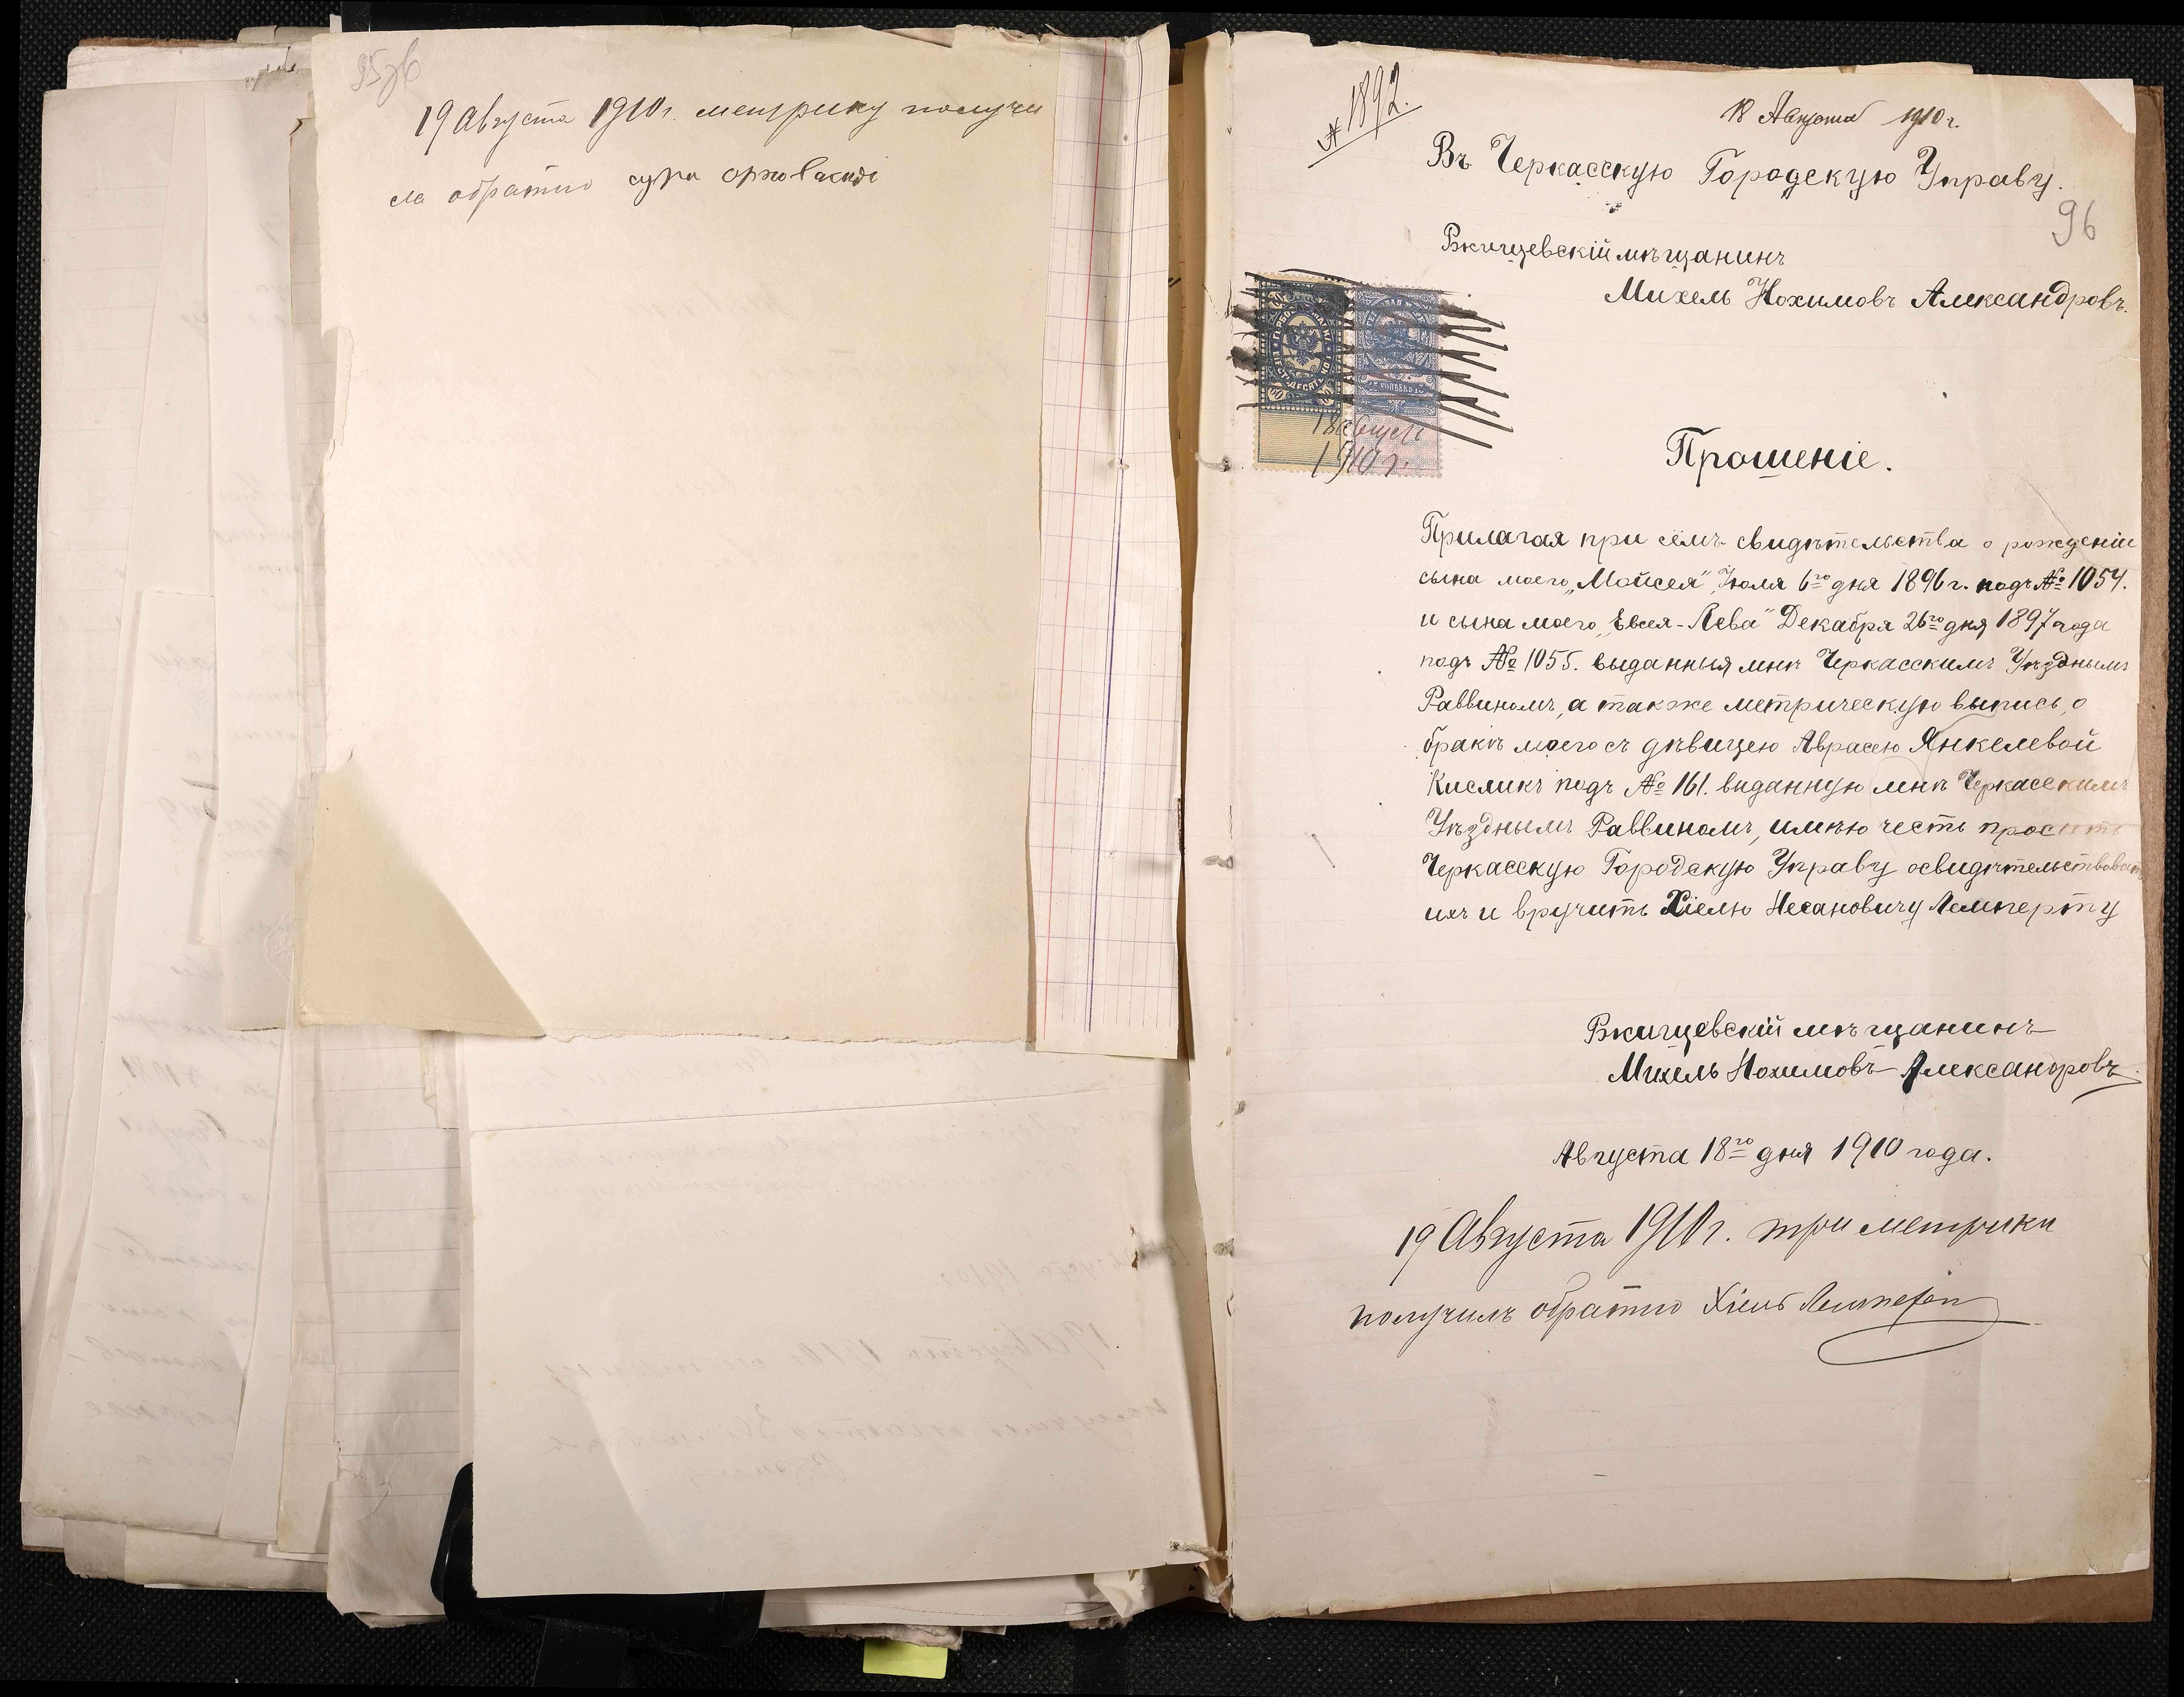 95зв
19 Августа 1910г. метрику получи
ла обратно сура
№ 1892.
18 Августа 1910 г.
Въ Черкасскую Городскую Управу.
96
Ржищевскій мѣщанинъ
Михель Нохимовъ Александровъ.
18 август
1910 г.
Прошеніе.
Прилагая при семъ свидѣтельства о рожденіи
сына моего „Мойсея“, Іюля 6го дня 1896 г. подъ № 1054.
и сына моего „Евсея-Лева“ Декабря 26го дня 1897 года
подъ № 1055. выданныя мнѣ Черкасскимъ Уѣзднымъ
Раввиномъ, а также метрическую выпись, о
бракѣ моего съ дѣвицею Аврасею Янкелевой
Кисликъ подъ № 161. виданную мнѣ Черкасскимъ
Уѣзднымъ Раввиномъ, имѣю честь просить
Черкасскую Городскую Управу освидѣтельствовать
ихъ и вручить Хіелю Несановичу Лемперту
Ржищевскій мѣщанинъ
Михель Нохимовъ Александровъ
Августа 18го дня 1910 года.
19 Августа 1910 г. три метрики
получилъ обратно Хіель Лемперт